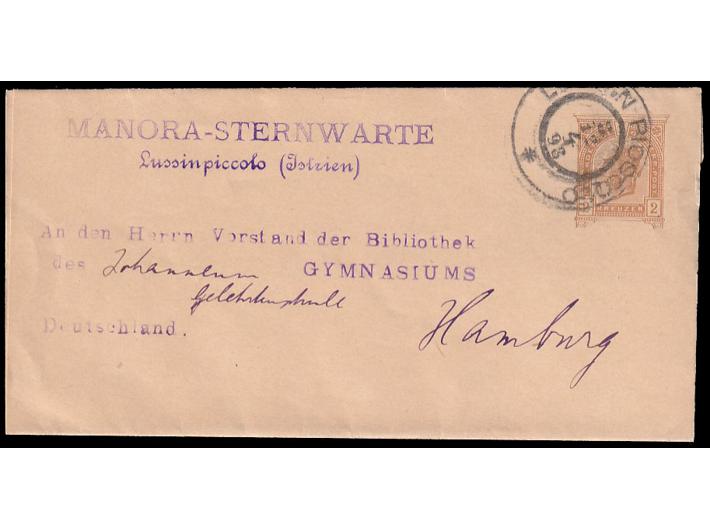 MANORA-STERNWARTE
Lussinpiccolo (Istrien)
LUSSINPICCOLO
4
98
KREUZER 2
An den Herrn Vorstand der Bibliothek
des Johanneum GYMNASIUMS
Gelehrtenschule
Deutschland.
Hamburg